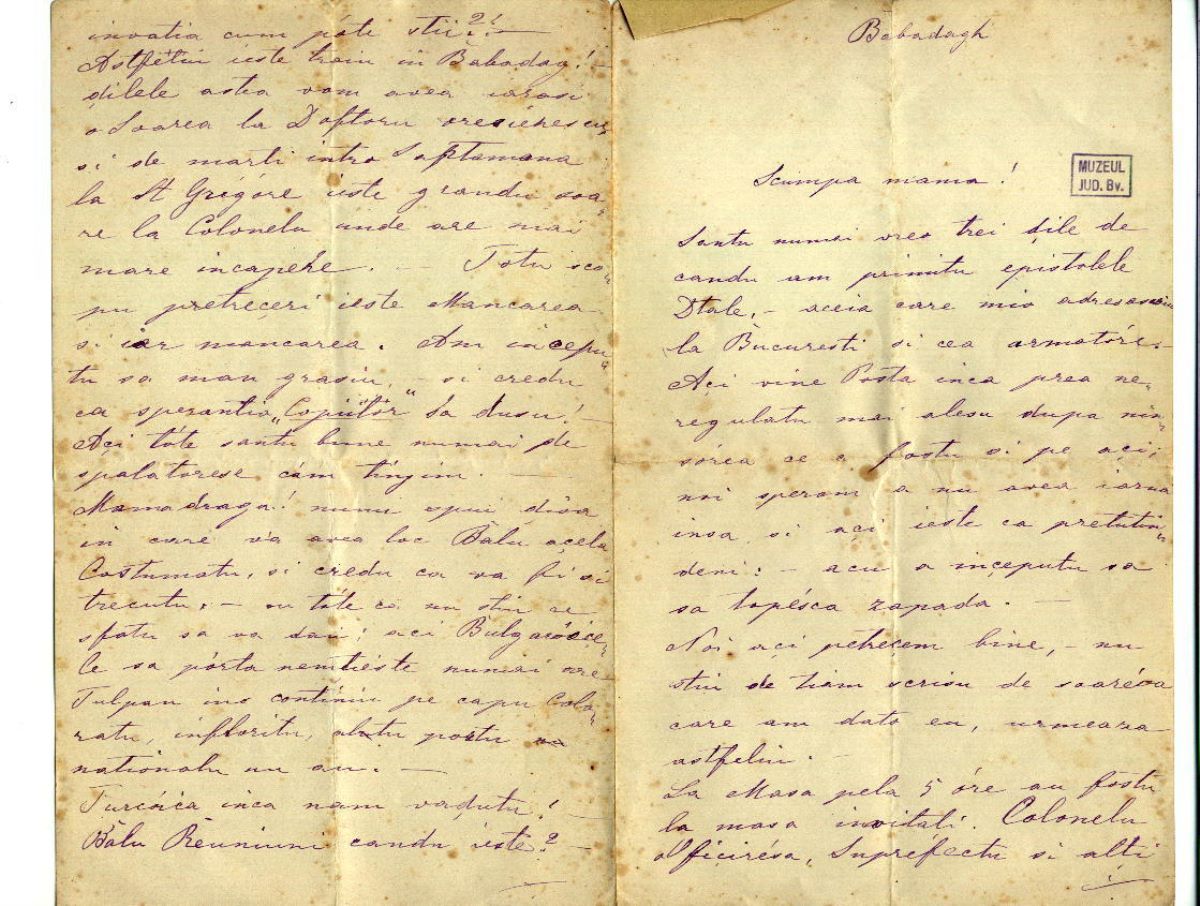 inovatia cum póte stii?!
Astfeliu ieste traiu in Babadag! –
dilele astea vom avea iarasi
o Soarea la Doftoru
si de marti intro Saptamana
la St Grégore ieste grandu soa„
re la Colonelu unde are mai
mare incapere. – Totu sco„
pu petreçeri ieste Mancarea
si iar mancarea. Am inçepu„
tu sa man grasiu, – si credu
ca sperantia „Copiilor“ sa dusu! –
Açi tóte santu bune numai de
spalatorese cam tinjim. –
Mama draga! numi spui diua
in care va avea loc Balu açela
Costumatu, si credu ca va fi si
trecutu; – cu tóte ca nu stiu ce
sfatu sa va dau; aci
Ce sa pórta nemtieste numai are
Tulpan ins continiu pe capu Colo„
ratu, infloritu, altu portu
nationalu nu au. –
Turcóica inca nam vadutu! –
Balu Réuniuni candu ieste? –
Babadagh
Scumpa mama!
MUZEUL
JUD. Bv.
Santu numai vreo trei dile de
candu am primitu epistolele
Dtale, – aceia care mio
la Bucuresti si cea armatóre. –
Açi vine Posta inca prea ne„
regulatu mai alesu dupa nin„
sórea ce a fostu si pe açi;
noi speram a nu avea iarna
insa si açi ieste ca pretutin„
deni: – acu a inçeputu sa
sa topésca zapada. –
Noi açi petreçem bine, – nu
stiu de tiam scrisu de soaréoa
care am dato eu, urmeaza
astfeliu. –
La Masa pela 5 óre au fostu
la masa invitati. Colonelu
Ofiçirésa, Suprefectu si alti